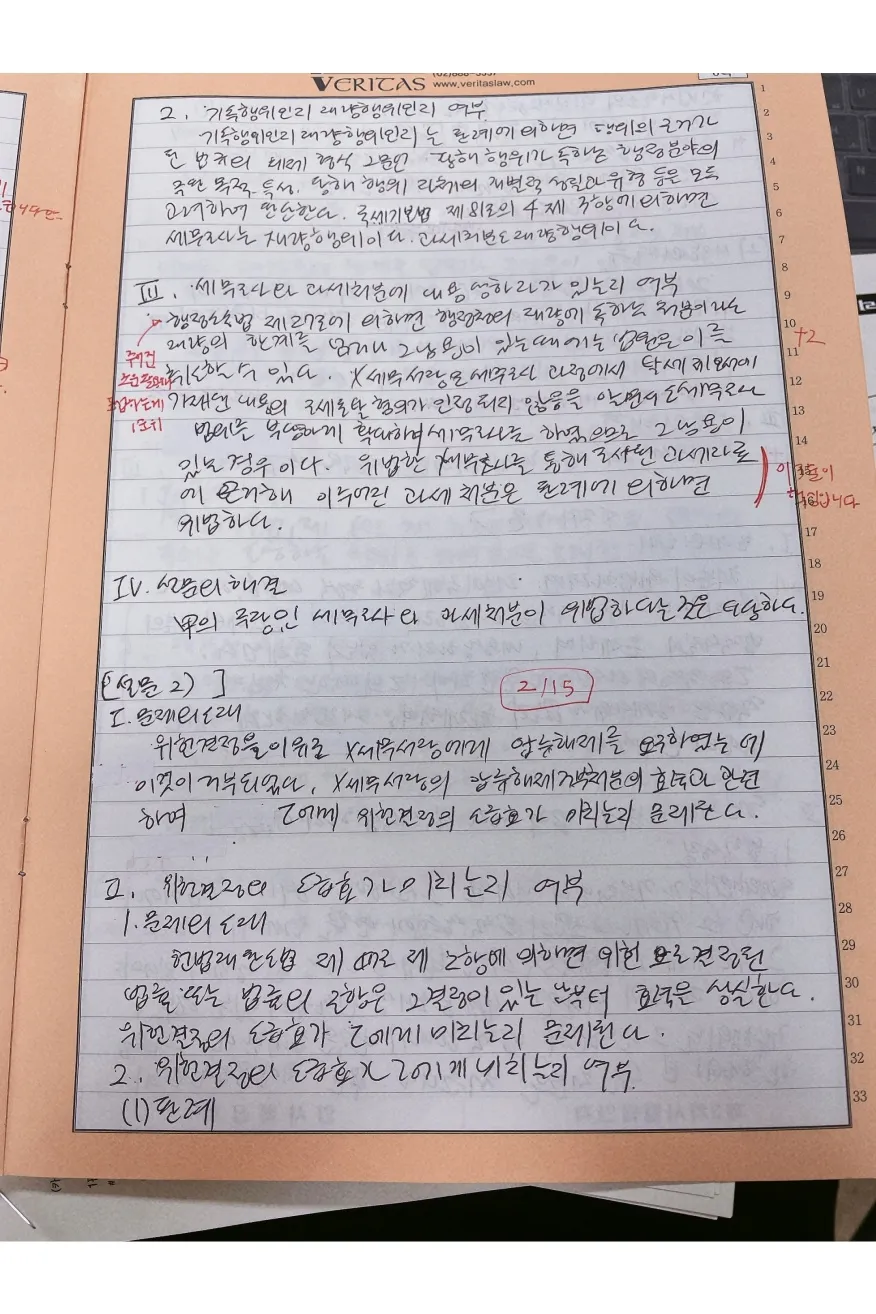 VERITAS www.veritaslaw.com
2. 기속행위인지 재량행위인지 여부
기속행위인지 재량행위인지는 판례에 의하면 행위의 근거가
된 법규의 체제 형식 그문언 당해 행위가 속하는 행정분야의
주된 목적 특성, 당해 행위 자체의 개별적 성질과 유형 등을 모두
고려하여 판단한다. 국세기본법 제81조의 4 제 항에 의하면
세무조사는 재량행위이다. 과세처분도 재량행위이다.
Ⅲ. 세무조사와 과세처분에 내용상하자가 있는지 여부
행정소송법 제27조에 의하면 행정청의 재량에 속하는 처분이라도
재량의 한계를 넘거나 그남용이 있는때에는 법원은 이를
취소할 수 있다. X세무서장은 세무조사 과정에서 탈세제보서에
기재된 내용의 조세포탈혐의가 인정되지 않음을 알면서도 세무조사
범위를 부당하게 확대하여 세무조사를 하였으므로 그 남용이
있는 경우이다. 위법한 세무조사를 통해 조사된 과세자료
에 근거해 이루어진 과세처분은 판례에 의하면
위법하다.
+2
Ⅳ. 설문의 해결
甲의 주장인 세무조사와 과세처분이 위법하다는 것은 타당하다.
[설문 2) ]
2/15
Ⅰ. 문제의 소재
위헌결정을 이유로 X세무서장에게 압류해제를 요구하였는데
이것이 거부되었다. X세무서장의 압류해제거부처분의 효력과 관련
하여 乙에게 위헌결정의 소급효가 미치는지 문제된다.
Ⅱ. 위헌결정의 소급효가 미치는지 여부
1. 문제의 소재
헌법재판소법 제47조 제2항에 의하면 위헌으로 결정된
법률 또는 법률의 조항은 그결정이 있는 날부터 효력을 상실한다.
위헌결정의 소급효가 乙에게 미치는지 문제된다.
2. 위헌결정의 소급효가 乙에게 미치는지 여부
(1) 판례
1
2
3
4
5
6
7
8
9
10
11
12
13
14
17
18
19
20
21
22
23
24
25
26
27
28
29
30
31
32
33